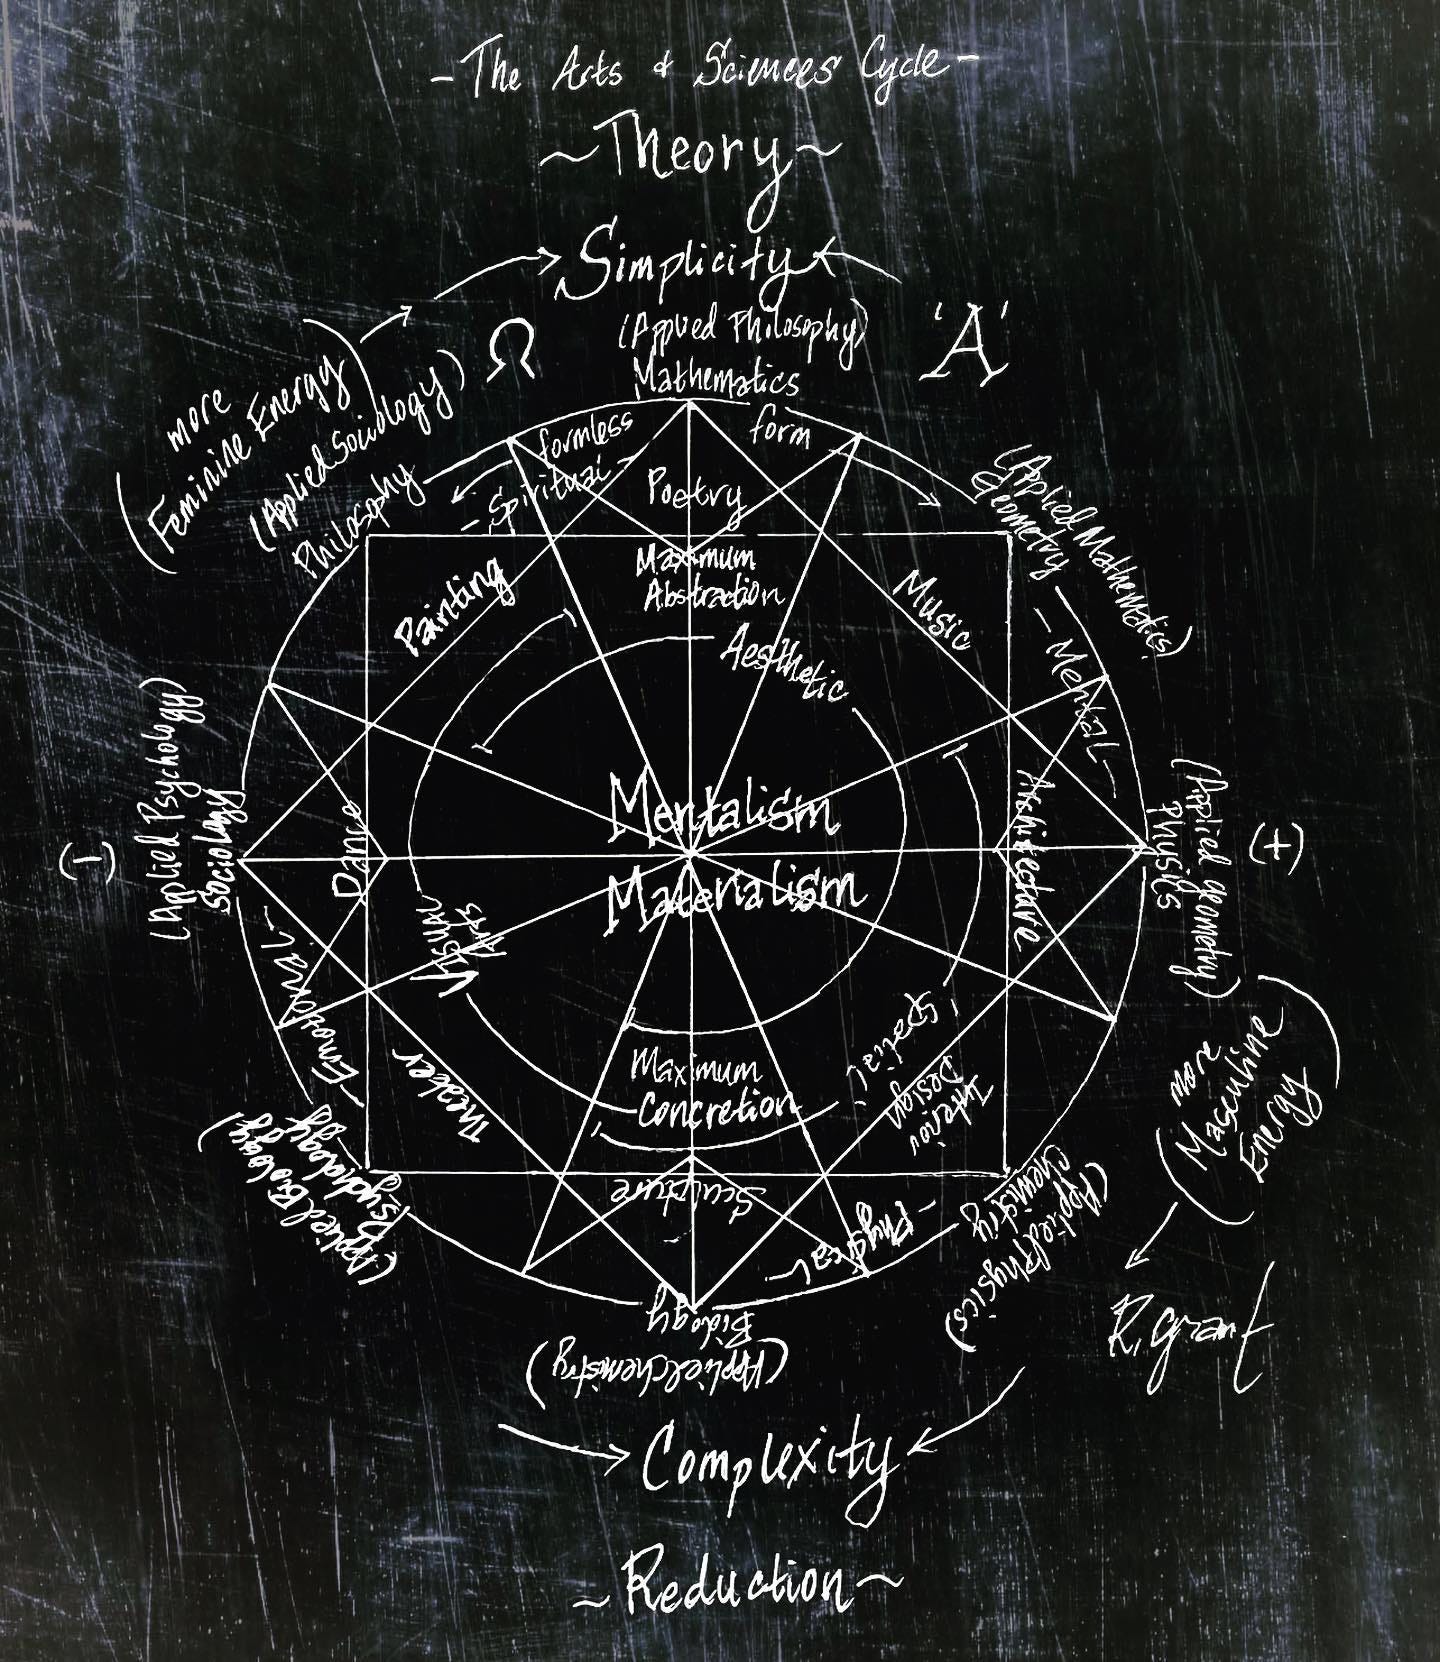 - The Arts & Sciences Cycle -
~ Theory ~
Simplicity
(Applied Philosophy)
Mathematics
Ω
'A'
more
(Feminine Energy)
(Applied Sociology)
Philosophy
formless
- Spiritual -
form
Poetry
Maximum
Abstraction
(Applied Mathematics)
Geometry
- Mental -
Painting
Music
Aesthetic
(Applied Psychology)
Sociology
(-)
Dance
Mentalism
Materialism
Architecture
(Applied geometry)
Physics
(+)
Visual
Arts
- Emotional -
Theater
Maximum
Concretion
Spatial
Interior
Design
more
(Masculine
Energy)
(Applied Biology)
Psychology
Sculpture
- Physical -
(Applied Physics)
Chemistry
Biology
(Applied chemistry)
R. Grant
Complexity
~ Reduction ~